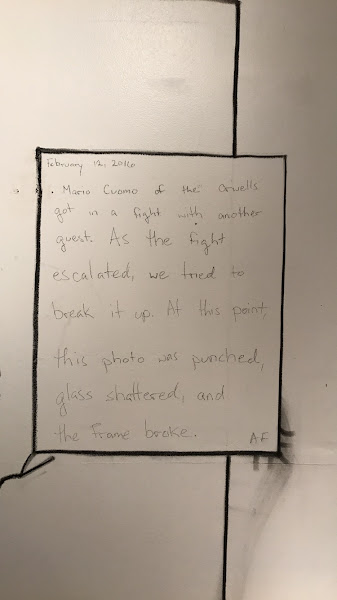 February 12, 2016
• Mario Cuomo of the Orwells
got in a fight with another
guest. As the fight
escalated, we tried to
break it up. At this point,
this photo was punched,
glass shattered, and
the frame broke.
AF